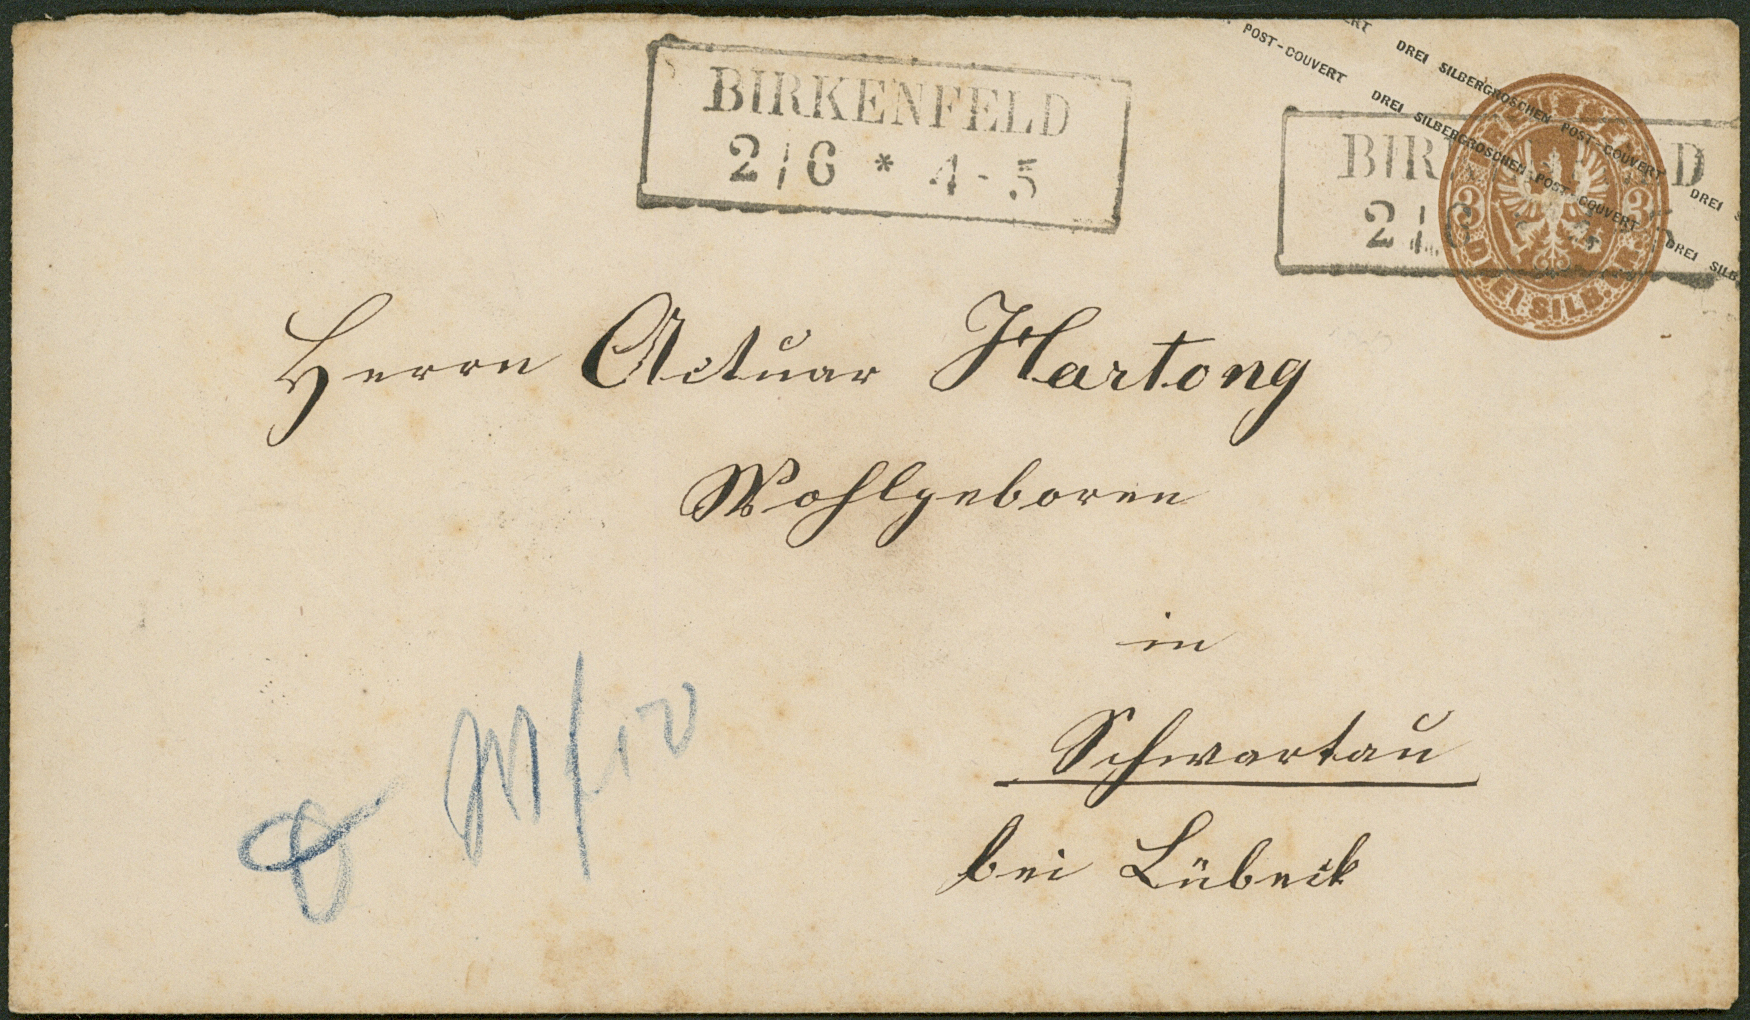 BIRKENFELD
2 | 6 * 4 - 5
POST-COUVERT DREI SILBERGROSCHEN POST-COUVERT DREI
POST-COUVERT DREI SILBERGROSCHEN POST-COUVERT DREI SILB
BIR D
2 | 6
3 3
DREI SILB. GR.
Herrn Actuar Hartong
Wohlgeboren
in
Schwartau
bei Lübeck